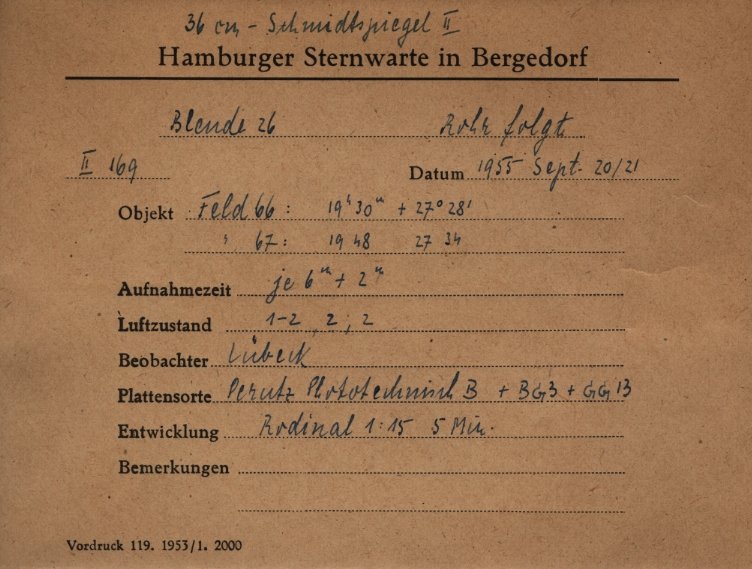 36 cm - Schmidtspiegel II
Hamburger Sternwarte in Bergedorf
Blende 26 Rohr folgt
II 169 Datum 1955 Sept. 20/21
Objekt Feld 66 : 19ʰ 30ᵐ + 27° 28'
" 67 : 19 48 27 34
Aufnahmezeit je 6ᵐ + 2ᵐ
Luftzustand 1-2, 2, 2
Beobachter Lübeck
Plattensorte Perutz Phototechnisch B + BG3 + GG 13
Entwicklung Rodinal 1:15 5 Min.
Bemerkungen
Vordruck 119. 1953/1. 2000